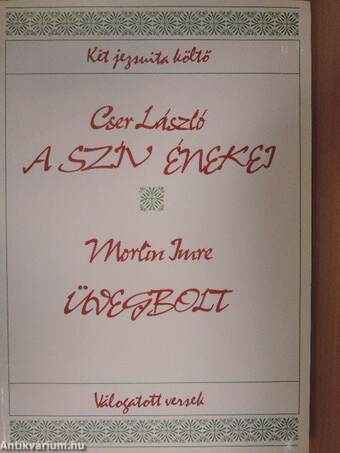 Két jezsuita költő
Cser László
A SZÍV ÉNEKEI
Morlin Imre
ÜVEGBOLT
Válogatott versek
Antikvárium.hu